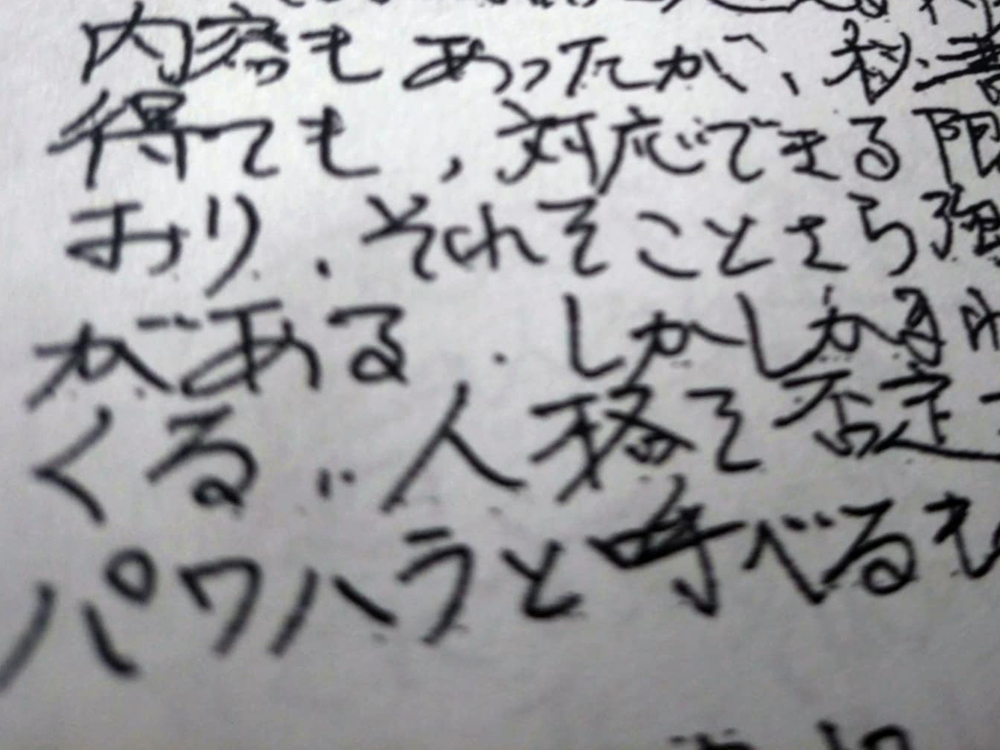 内容もあったが、
得ても、対応できる限
おり、それをことさら強
がある。しかし
くる、人格を否定
パワハラと呼べるも